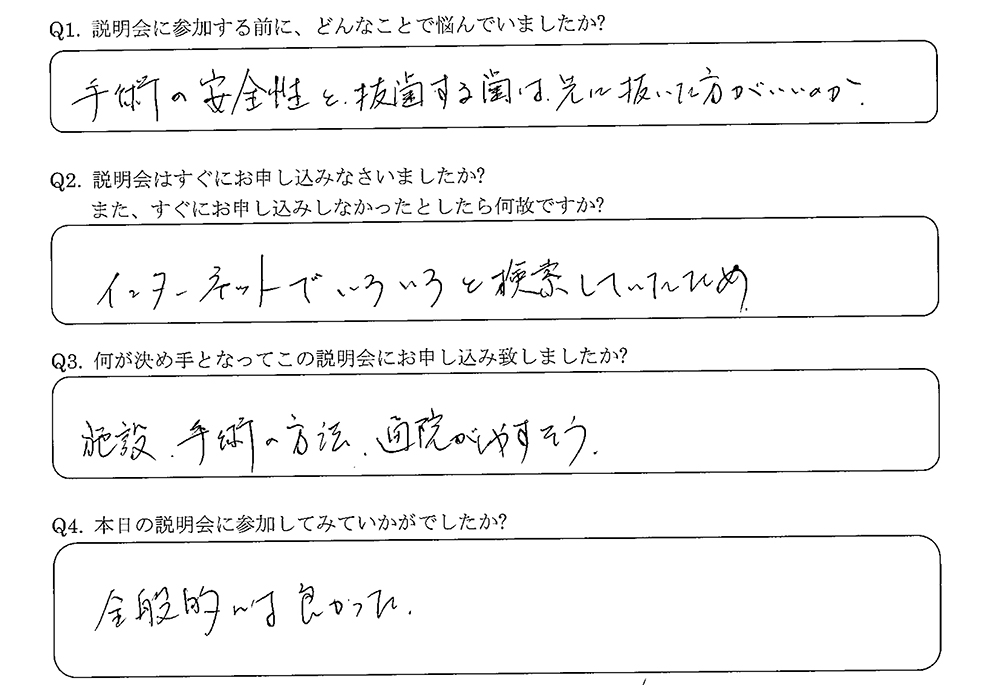 Q1. 説明会に参加する前に、どんなことで悩んでいましたか?
手術の安全性と、抜歯する歯は、先に抜いた方がいいのか、
Q2. 説明会はすぐにお申し込みなさいましたか?
また、すぐにお申し込みしなかったとしたら何故ですか?
インターネットでいろいろと検索していたため
Q3. 何が決め手となってこの説明会にお申し込み致しましたか?
施設、手術の方法、通院がしやすそう、
Q4. 本日の説明会に参加してみていかがでしたか?
全般的には良かった、